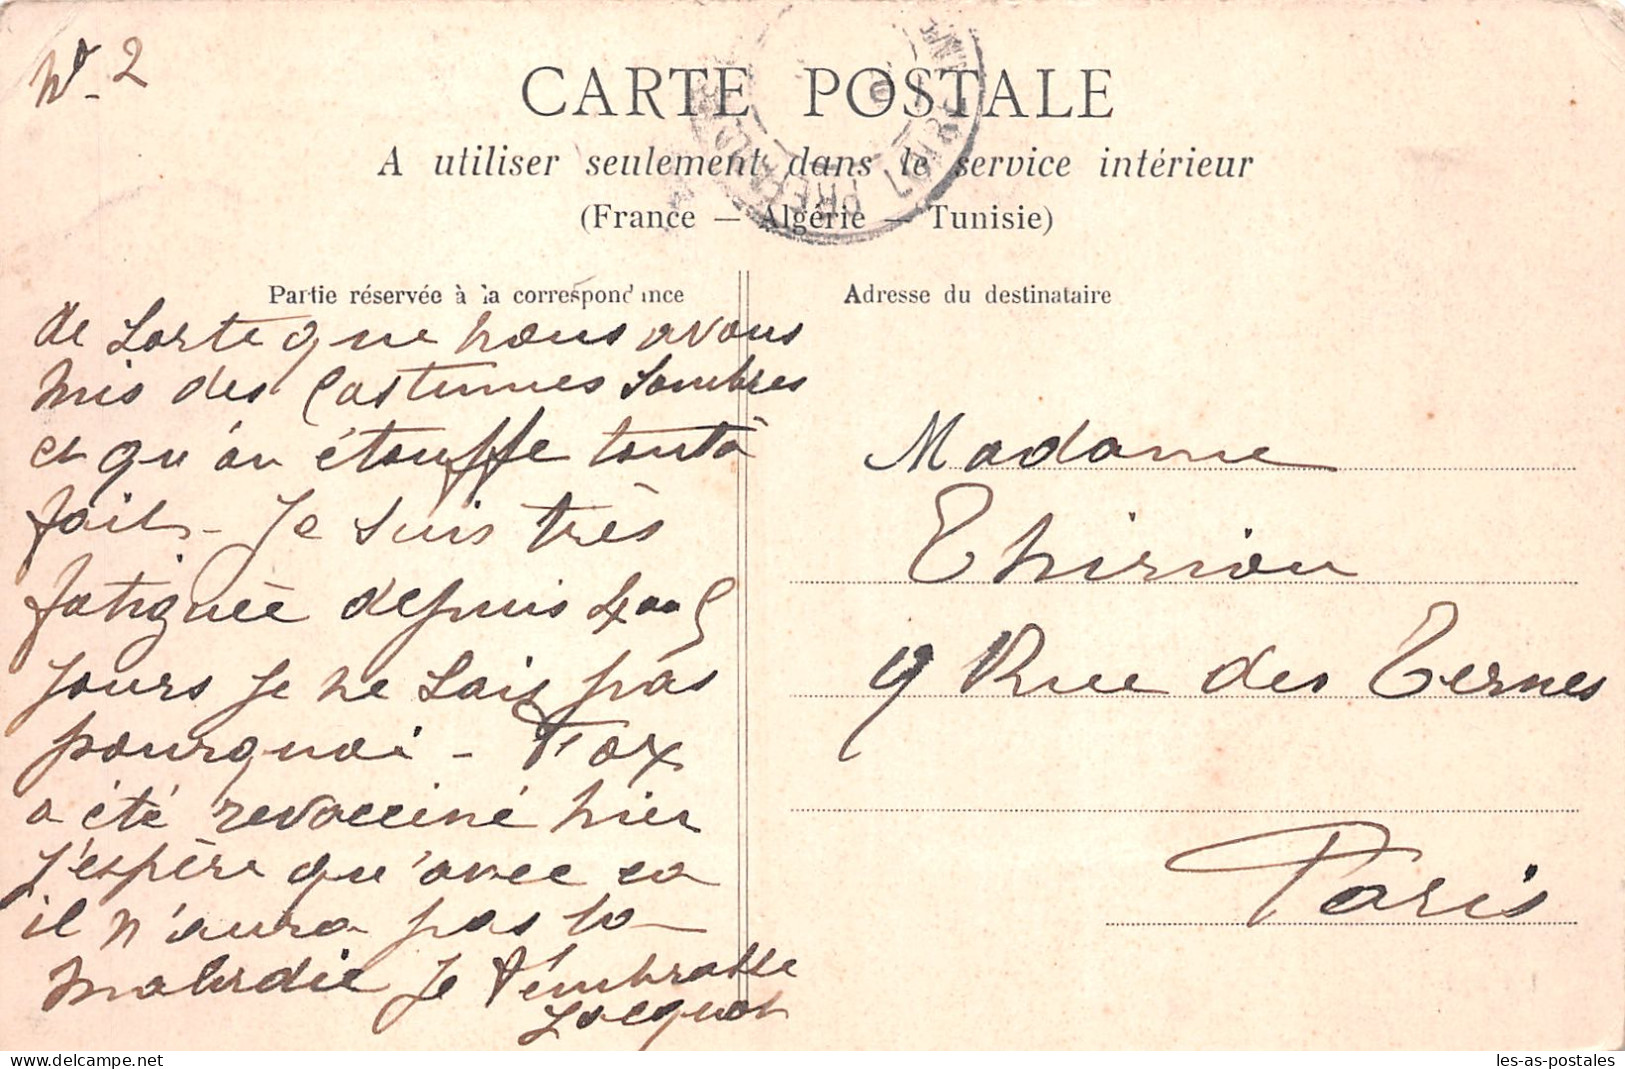 No. 2
CARTE POSTALE
A utiliser seulement dans le service intérieur
(France — Algérie — Tunisie)
Partie réservée à la correspondance
de sorte que nous avons
mis des Costumes Sombres
et qu'on étouffe tout à
fait - Je suis très
fatiguée depuis 4 ou 5
jours je ne sais pas
pourquoi - Fox
a été revacciné hier
j'espère qu'avec ça
il n'aura pas la
maladie Je t'embrasse
Jacquot
Adresse du destinataire
Madame
Thirion
9 Rue des Ternes
Paris
les-as-postales